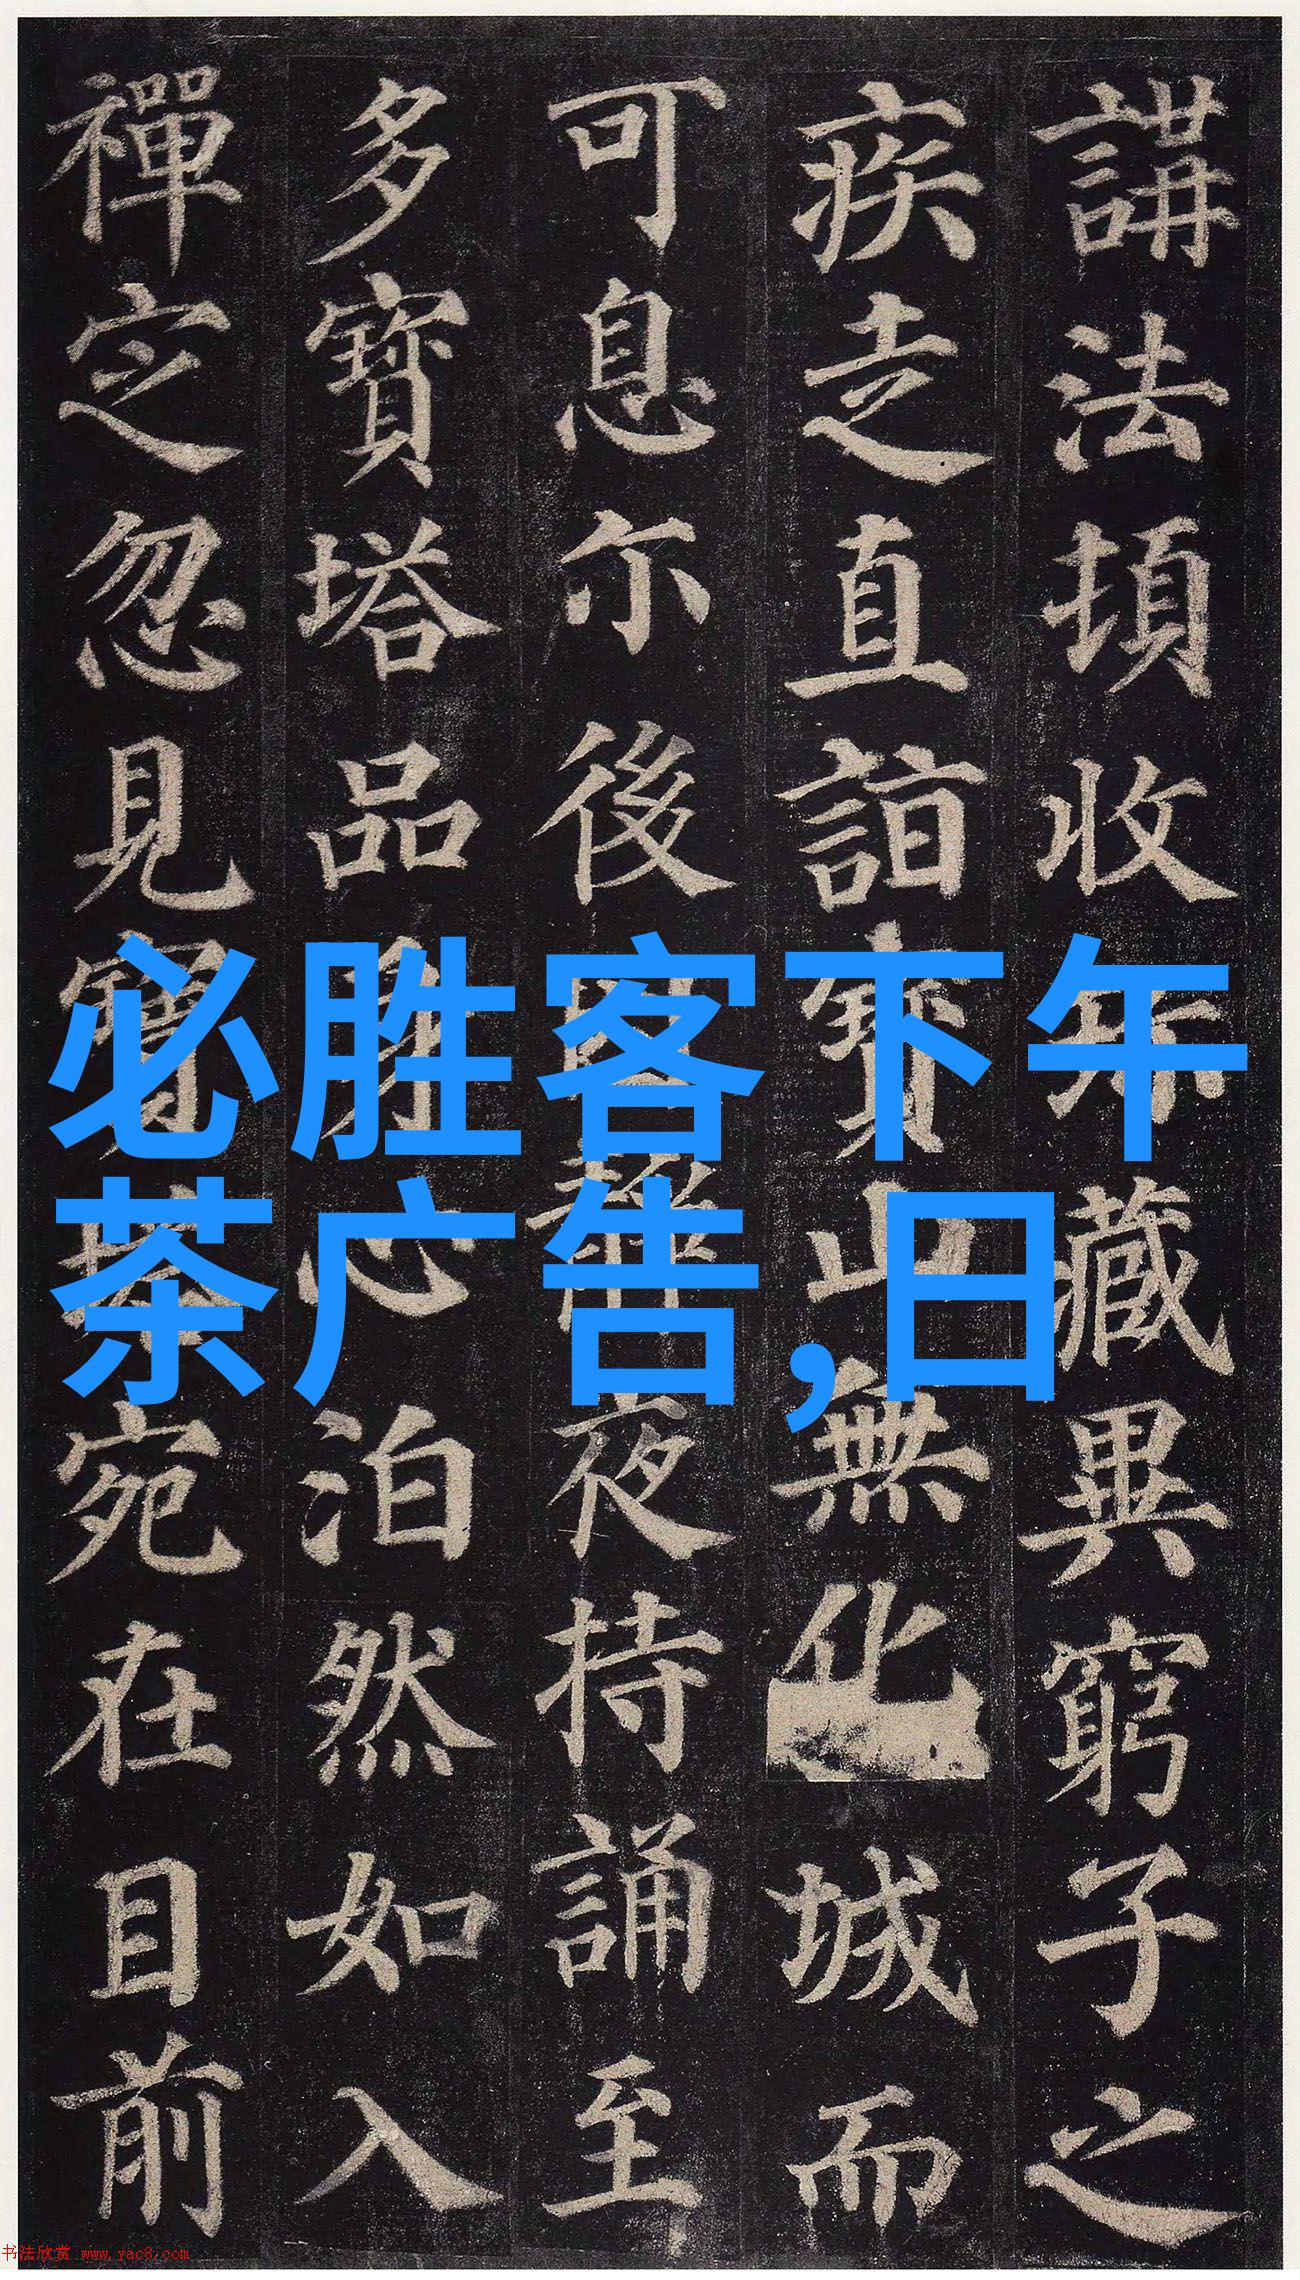 講法頓收珎藏異窮子之
疾走直詣寶山無化城而
可息尒後因靜夜持誦至
多寶塔品身心泊然如入
禪定忽見寶塔宛在目前
必胜客下午
茶广告,日
书法欣赏 www.yac8.com